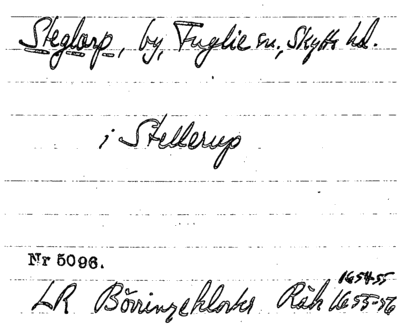 Steglarp, by, Fuglie sn., Skytts hd.
i Stellerup
Nr 5096.
1654-55
LR Börringeklosters Räk 1655-56